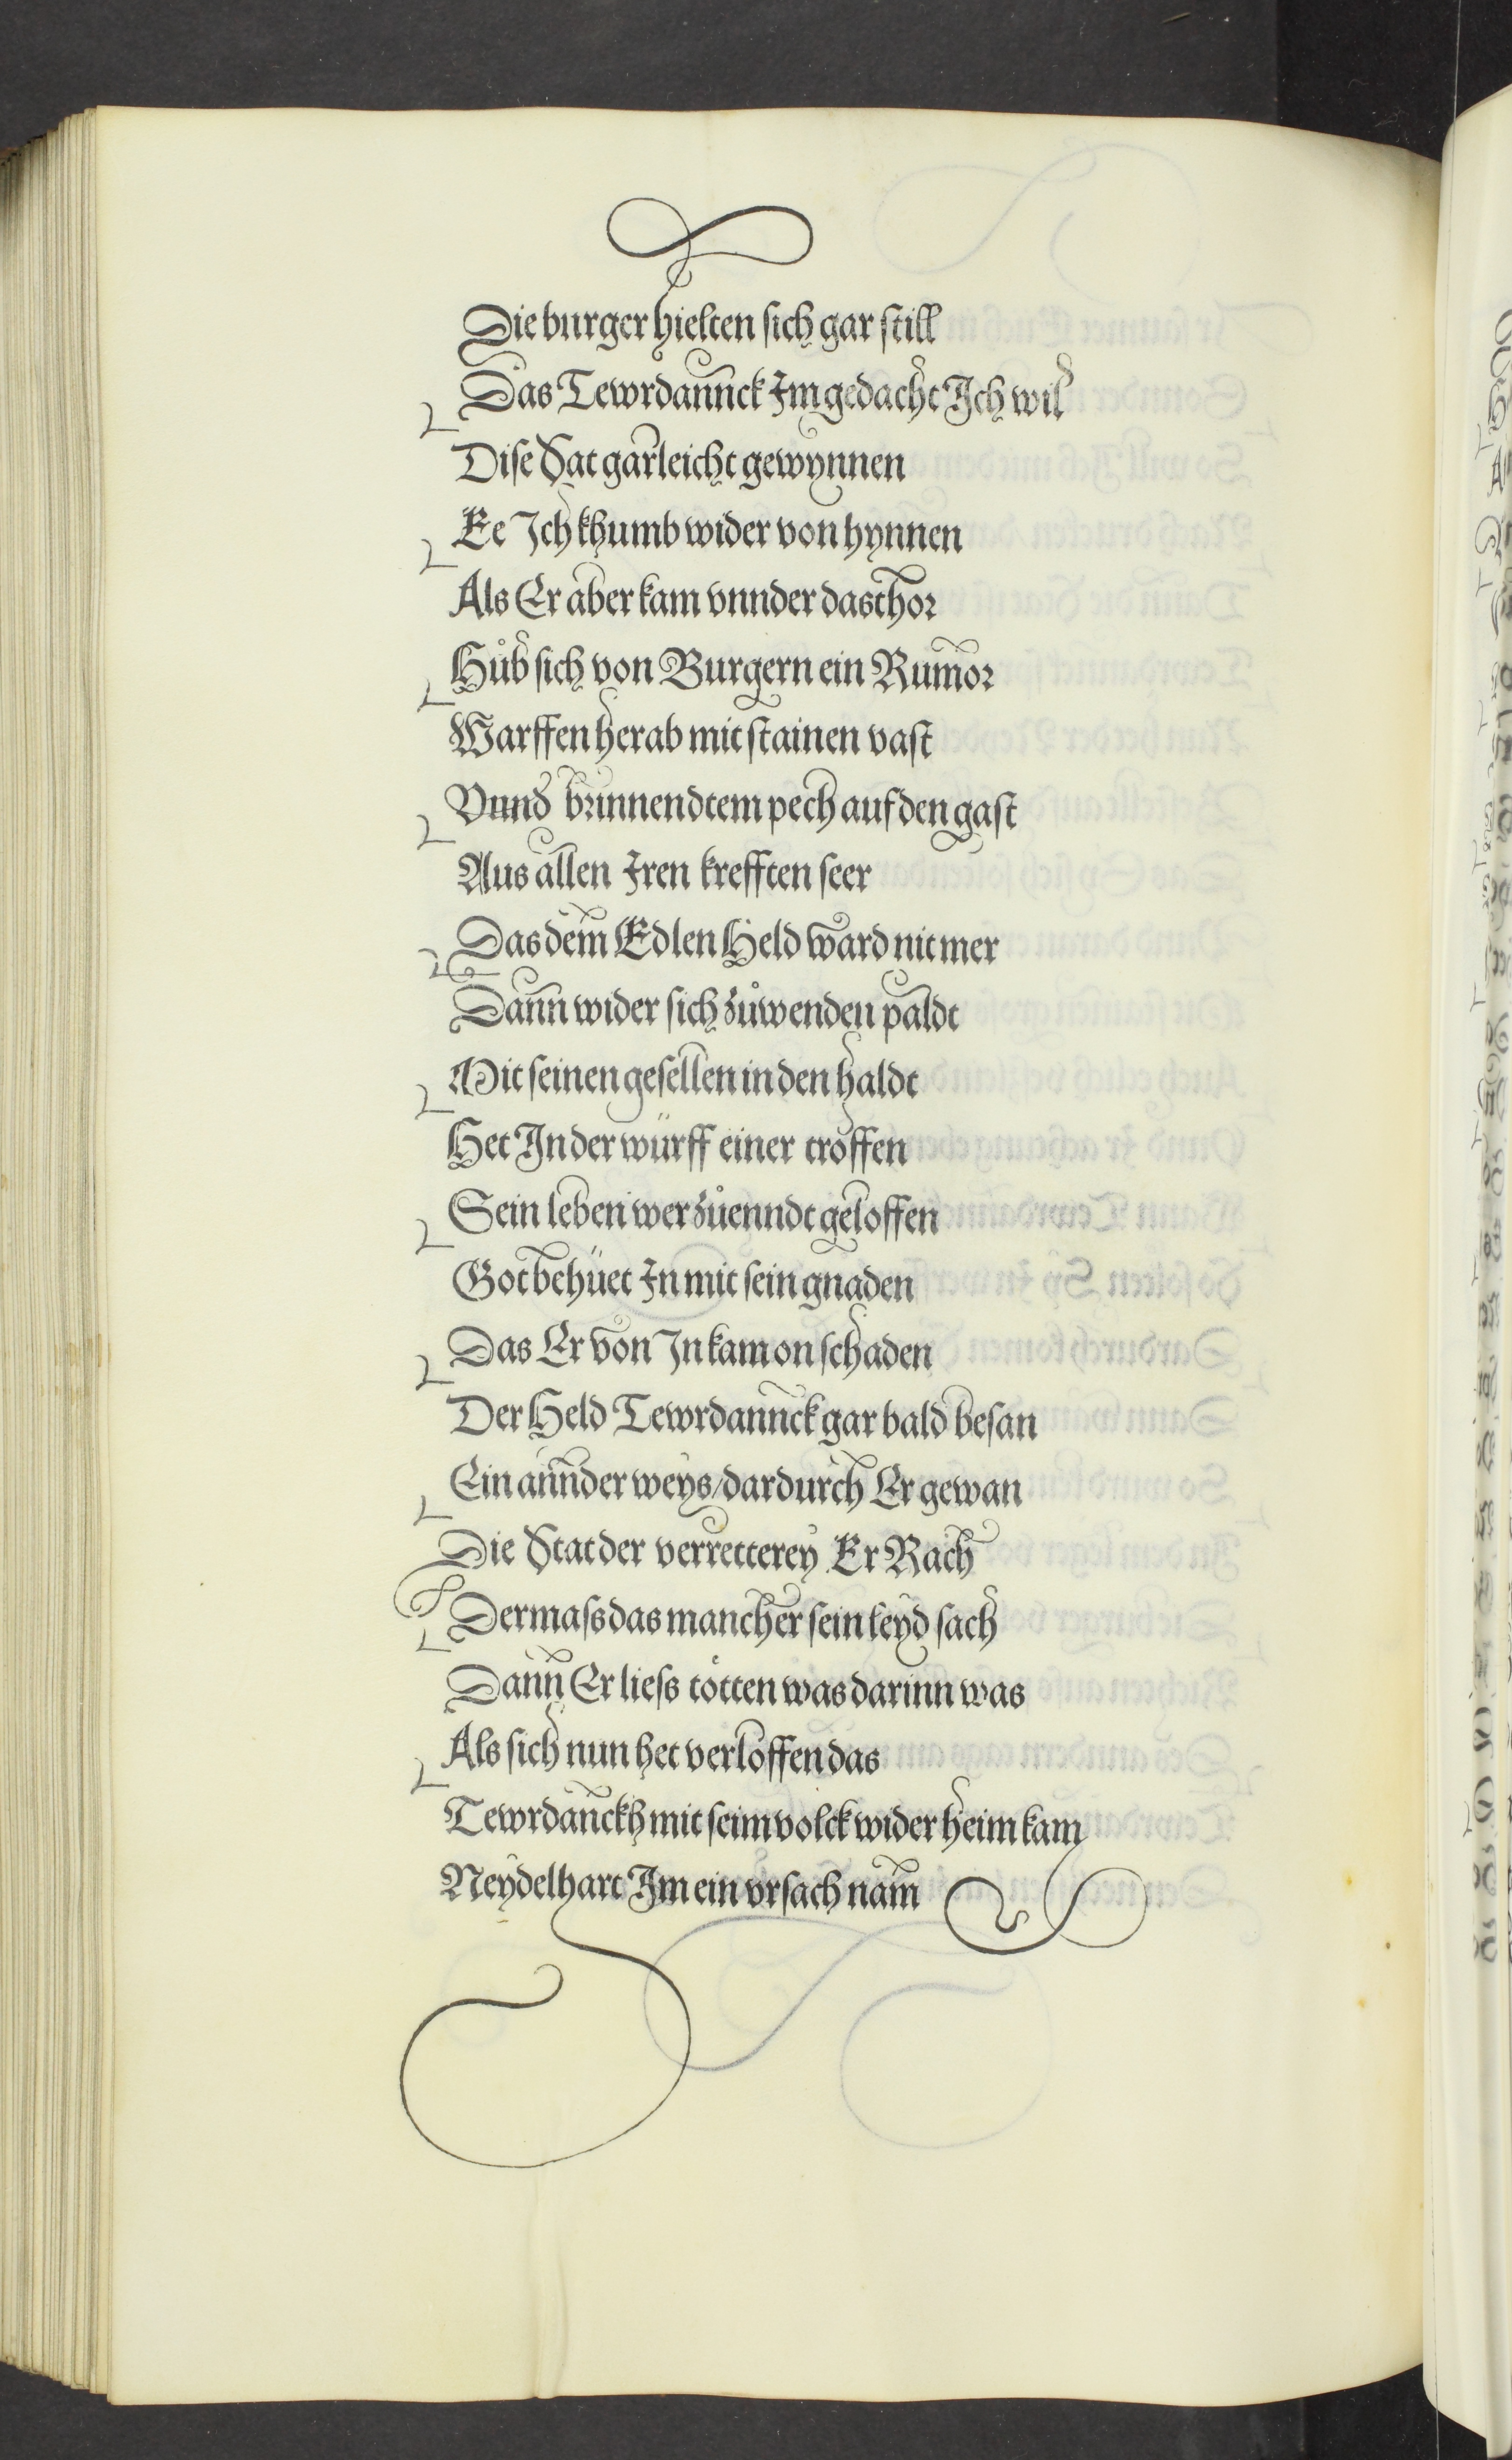 Die burger hielten sich gar still
Das Tewrdannck Im gedacht Ich wil
Dise Stat gar leicht gewynnen
Ee Ich khumb wider von hynnen
Als Er aber kam vnnder das thor
Hůb sich von Burgern ein Rumor
Warffen herab mit stainen vast
Vnnd brinnendtem pech auf den gast
Aus allen Iren krefften seer
Das dem Edlen Held ward nit mer
Dann wider sich zůwenden paldt
Mit seinen gesellen in den haldt
Het In der würff einer troffen
Sein leben wer zůenndt geloffen
Got behüet In mit sein gnaden
Das Er von In kam on schaden
Der Held Tewrdannck gar bald besan
Ein annder weys/dardurch Er gewan
Die Stat der verretterey Er Rach
Dermass das mancher sein leyd sach
Dann Er liess tötten was darinn was
Als sich nun het verloffen das
Tewrdanckh mit seim volck wider heim kam
Neydelhart Im ein vrsach nam